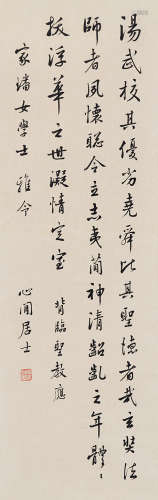 湯武校其優劣堯舜比其聖德者哉玄奘法
師者夙懷聰令立志夷簡神清齠齔之年體
拔浮華之世凝情定室 背臨聖教應
家璠女學士雅令
心聞居士